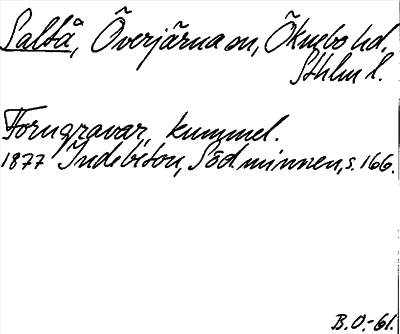 Saltå, Överjärna sn, Öknebo hd.
Sthlm l.
Forngravar, kummel.
1877 Indebetou, Söd minnen, s. 166.
B.O.-61.